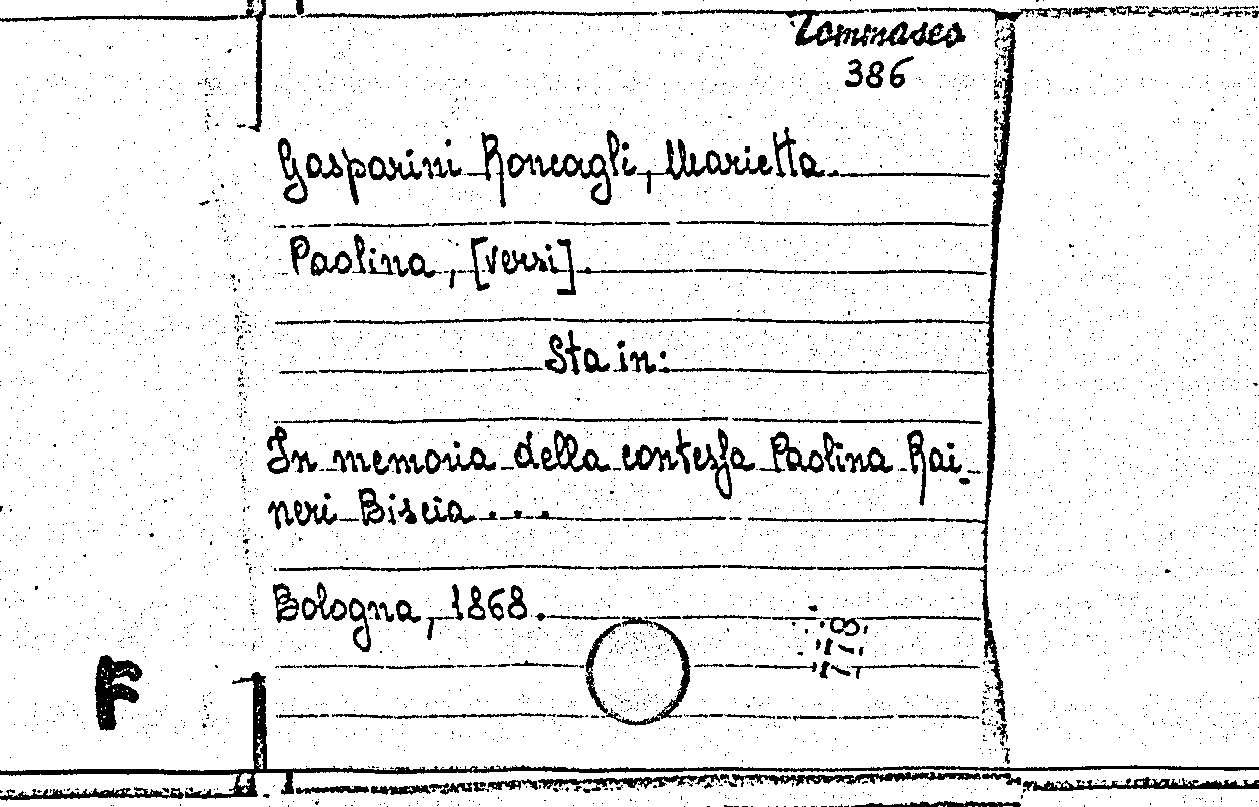 Tommaseo
386
Gasparini Roncagli, Marietta.
Paolina, [versi].
Sta in:
In memoria della contessa Paolina Rai-
neri Biscia ...
Bologna, 1868.
F